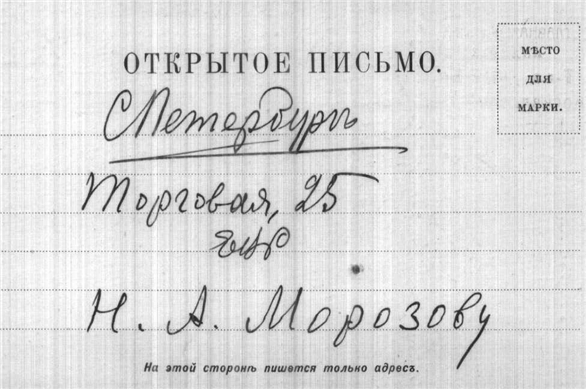 ОТКРЫТОЕ ПИСЬМО.
МѢСТО
ДЛЯ
МАРКИ.
СПетербургъ
Торговая, 25
Н. А. Морозову
На этой сторонѣ пишется только адресъ.